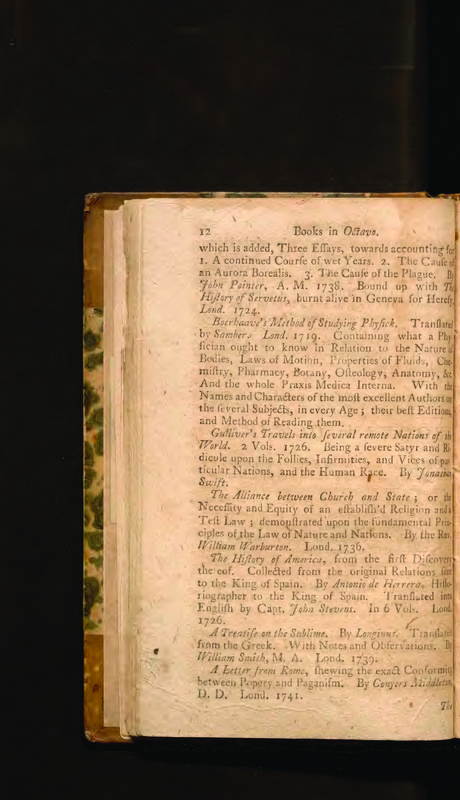 12 Books in Octavo.
which is added, Three Eſſays, towards accounting for
1. A continued Courſe of wet Years. 2. The Cauſe of
an Aurora Borealis. 3. The Cauſe of the Plague. By
John Pointer, A. M. 1738. Bound up with The
Hiſtory of Servetus, burnt alive in Geneva for Hereſy.
Lond. 1724.
Boerhaave's Method of Studying Phyſick. Tranſlated
by Samber. Lond. 1719. Containing what a Phy-
ſician ought to know in Relation to the Nature of
Bodies, Laws of Motion, Properties of Fluids, Che-
miſtry, Pharmacy, Botany, Oſteology, Anatomy, &c.
And the whole Praxis Medica Interna. With the
Names and Characters of the moſt excellent Authors on
the ſeveral Subjects, in every Age; their beſt Editions,
and Method of Reading them.
Gulliver's Travels into ſeveral remote Nations of the
World. 2 Vols. 1726. Being a ſevere Satyr and Ri-
dicule upon the Follies, Infirmities, and Vices of par-
ticular Nations, and the Human Race. By Jonathan
Swift.
The Alliance between Church and State; or the
Neceſſity and Equity of an eſtabliſh'd Religion and a
Teſt Law; demonſtrated upon the fundamental Prin-
ciples of the Law of Nature and Nations. By the Rev.
William Warburton. Lond. 1736.
The Hiſtory of America, from the firſt Diſcovery
thereof. Collected from the original Relations ſent
to the King of Spain. By Antonio de Herrera, Hiſto-
riographer to the King of Spain. Tranſlated into
Engliſh by Capt. John Stevens. In 6 Vols. Lond.
1726.
A Treatiſe on the Sublime. By Longinus. Tranſlated
from the Greek. With Notes and Obſervations. By
William Smith, M. A. Lond. 1739.
A Letter from Rome, ſhewing the exact Conformity
between Popery and Paganiſm. By Conyers Middleton,
D. D. Lond. 1741.
The